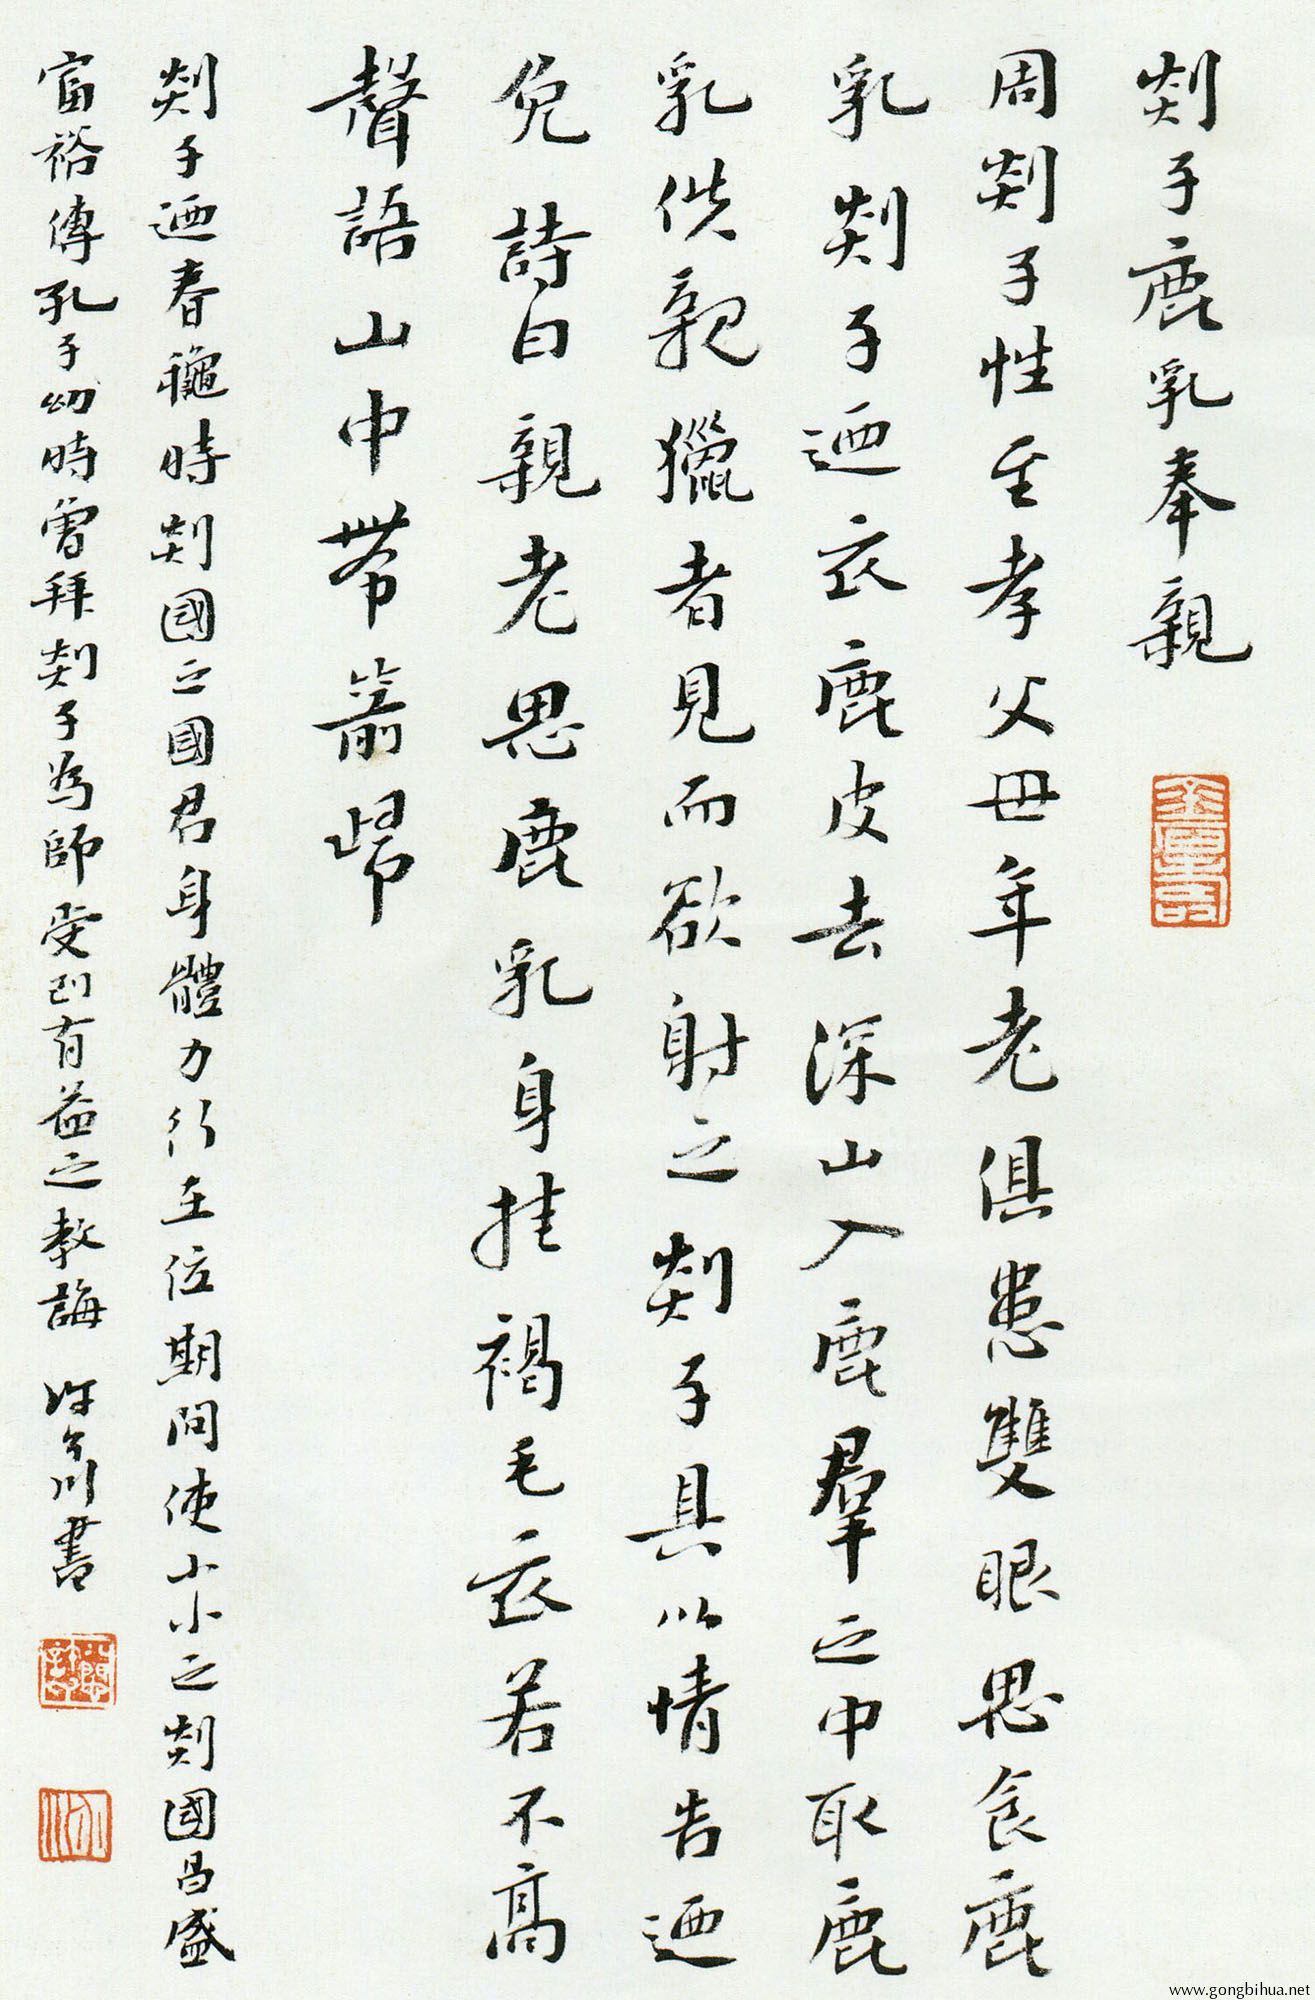 剡子鹿乳奉親
周剡子性至孝父母年老俱患雙眼思食鹿
乳剡子迺衣鹿皮去深山入鹿羣之中取鹿
乳供親獵者見而欲射之剡子具以情告迺
免詩曰親老思鹿乳身挂褐毛衣若不高
聲語山中帶箭歸
剡子迺春龝時剡國之國君身體力行在位期間使小小之剡國昌盛
富裕傳孔子幼時曾拜剡子為師受到有益之教誨 書
www.gongbihua.net